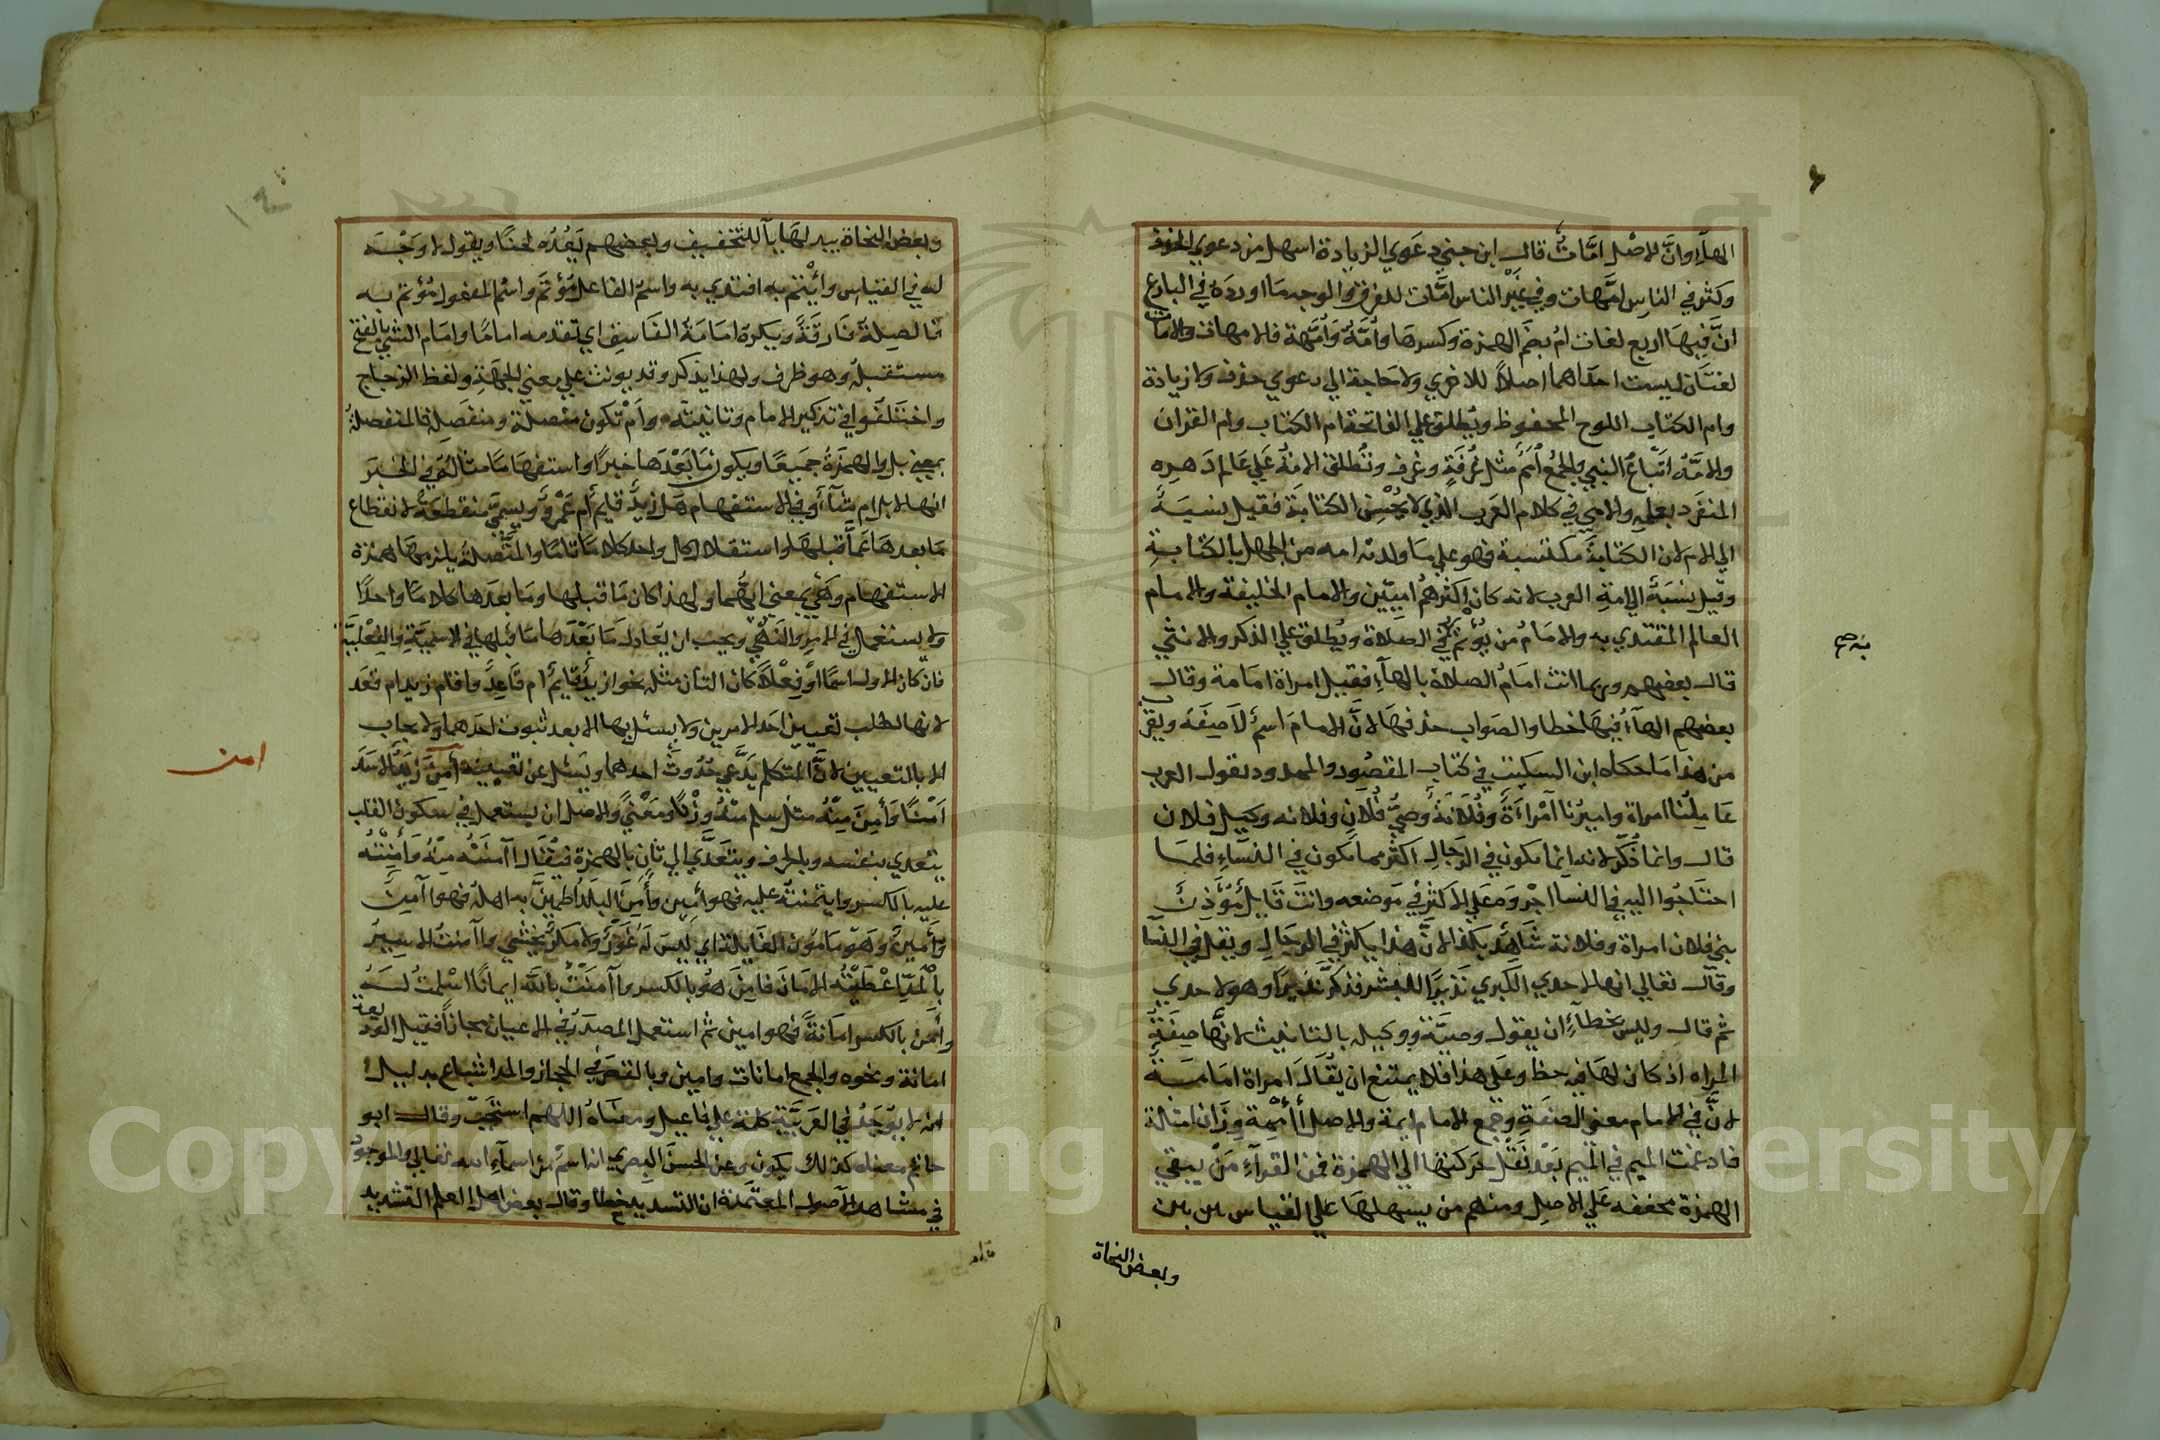 الهآء وانَّ الاصْل امَّات قال ابن جني دعَوي الزيادة اسهل من دعوي الحذف
وكثر في الناسِ امَّهات وفي غَيْر الناس امَّات للفرق والوجه ما اورده في البارع
انَّ فيهَا اربع لغات امُ بضم الهمزة وكسرهَا وامَّهٌ وَامَّهة فالامهات والامات
لغتَان ليست احداهما اصلاً للاخري ولا حَاجة الي دعوي حذف ولا زيادة
وام الكتاب اللوح المحفوظ ويُطلق علي الفاتحة ام الكتاب وام القران
والامَّه اتْبَاعُ النبي والجمعُ اُمَمٌ مثل غُرفَةٍ وغرف وتُطلق الامهُ عَلي عَالم دَهره
المنفرد بعلمهِ والامي في كلام العَرب الذي لا يحْسِن الكتابَة فقيل نسبَةً
الي الام لان الكتابَة مكتسبة فهو علي مَا ولدته امه من الجهل بالكتابةِ
وقيل نسْبَةً الي امةِ العرب لانه كان اكثرهُمْ اميِّين والامام الخليفة والامام
العالم المقتدي به والامَامُ من يُؤتمُّ في الصلاة ويُطلق علي الذكر والانثي
به صح
قال بعضهم وربما انث امَامُ الصلاة بالهآءِ فقيل امراة امامة وقال
بعضهم الهآء فيهَا خطا والصَواب حذفهَا لانَّ الامامَ اسمٌ لاَ صِفَةٌ ويقرب
من هذا مَا حكاه ابن السكيت في كتاب المقصُور والممدود تقول العرب
عَامِلُنا امراة واميرُنا آمْراءَةٌ وفُلاَنَةٌ وصيُّ فُلاَنٍ وفلانه وكيل فلان
قال وانما ذُكِّر لانه انما يكون في الرجَالِ اكثر مما يكون في النسَاءِ فلمَا
احتَاجُوا اليه في النسا اجْروهَ عَلي الاكثرِ في مَوضعه وانتَ قَايلٌ مُؤذِنُ
بني فلان امراة وفلانة شَاهِدٌ بكذا لانَّ هذا يكثر في الرجَالِ ويقل في النسآ
وقال تعالي انها لاحدي الكبري نَذيرًا للبشر فذكَّر نَذيرًا وهو لاحدي
ثم قال وليس بخطآءٍ ان يقول وصيَّة ووكيله بالتانيث لانَّها صِفَةُ
المراه اذ كان لهَا فيه حظ وعَلي هذا فلا يمتنع ان يُقَالَ امراة امَامَة
لانَّ في الامام معني الصفَةِ وجمع الامام ايمة والاصل أَأمِمة وزان امثلة
فادغمت الميم في الميم بَعْد نَقْل حَركتها الي الهمزة فمن القرآءِ مَنْ يبقي
الهمزة محففه عَلي الاصل ومنهم من يسهلهَا علي القياس بين بين
وبعض النحاة
وبعض النحاة يبدلهَا يآ للتخفيف وبعضهم يَعُدُه لحنًا ويقول لا وَجْهَ
له في القياس وأيْتم به اقتدي به واسم الفاعل مُؤتَم واسْم المفعول مُؤتم به
فالصلة فَارقَةٌ ويكره امَامَةُ الفَاسِق اي تقدمه امامًا وامَام الشيءِ بالفتح
مستقبلُه وهو ظرف ولهذا يذكر وقد يونث علي معني الجهَةِ ولفظ الزجاج
واختَلفُوا في تذكير الامام وتانيثه وامْ تكون متصلة ومنفَصِلة فالمنفصلةُ
بمعني بل والهمزة جَميعًا ويكون مَا بَعْدَهَا خبرًا واستفهَامًا مثالهُ في الخبَر
انها لابل ام شآءٌ وفي الاستفهام هَل زيدٌ قايمٌ أم عَمْرٌو ويسميَّ منقطعَة لانقطاع
مَا بعدهَا عَمَّا قبلهَا واستقلال كل واحد كلامًا تامًا والمتَّصلةُ يلزمهَا همزة
الاستفهام وَهيْ بمعني ايُّهمَا ولهذا كان مَا قبلها ومَا بعدَها كلامًا واحدًا
ولا يستعمل في الامرِ والنَهْي ويجب ان يعَادل مَا بَعْدَهَا مَا قبلها في الاسميَّةِ والفِعْليَّة
فان كان الاول اسمًا اوْ فِعْلاً كان الثان مثلهُ نحو ازيدٌ قايمٌ ام قَاعِدٌ واقام زيد ام قعَدَ
لانها لطلب تعيين احَد الامرين ولا يسئل بها الا بعد ثبوت احَدهما ولا يجاب
الا بالتعيين لانَّ المتكلم يَدَّعي حُدُوثَ احدهما ويَسئل عن تعيينه أمِنَ زيدٌ الاسَدَ
امن
اَمْنًا وَأمِنَ مِنْهُ مثل سلم منهُ وزْنًا ومَعْنيً والاصل ان يستعمل في سكون القلب
يتعدي بنفسه وبالحرف ويتَعَدَّي الي ثانٍ بالهمزة فيُقَال آمنْتُهُ مِنْهُ وَأمِنْتُه
عليه بالكسر وايتَمنتُهُ عليه فهو أمين وأمِنَ البلَدُ اطْمَئنَّ به اهلهُ فهو آمِنٌ
وَأمينٌ وَهوَ مَامُون الغَايلة اي ليسَ لَهُ غُورٌ ولا مَكرٌ يخشي وآمنتُ الاسِيرُ
بالْمَدِّ أعْطَيْتُه الامَانَ فامِنَ هُوَ بالكسر وآمَنْتُ باللهِ ايمانًا اسْلمتُ لهُ
وأمِنَ بالكسر امَانةً فهو امين ثم استعمل المصدَرُ في الاعيان مجازاً فقيل الوديعة
امانة ونحوه والجمع امانات وامين وبالقصر في الحجاز والمد اشباع بدليل
انه لا يوجَدُ في العَربيَّةِ كلمة علي فاعيل ومعنَاهُ اللهم استَجبْ وقال ابو
حاتم معناه كذلك يكون وعن الحسَن البصري انه اسمٌ من اسمآءِ الله تعالي والموجودُ
في مشاهير الآصول المعتَمَدة ان التشديد خطأ وقال بعض اهل العلم التشديد